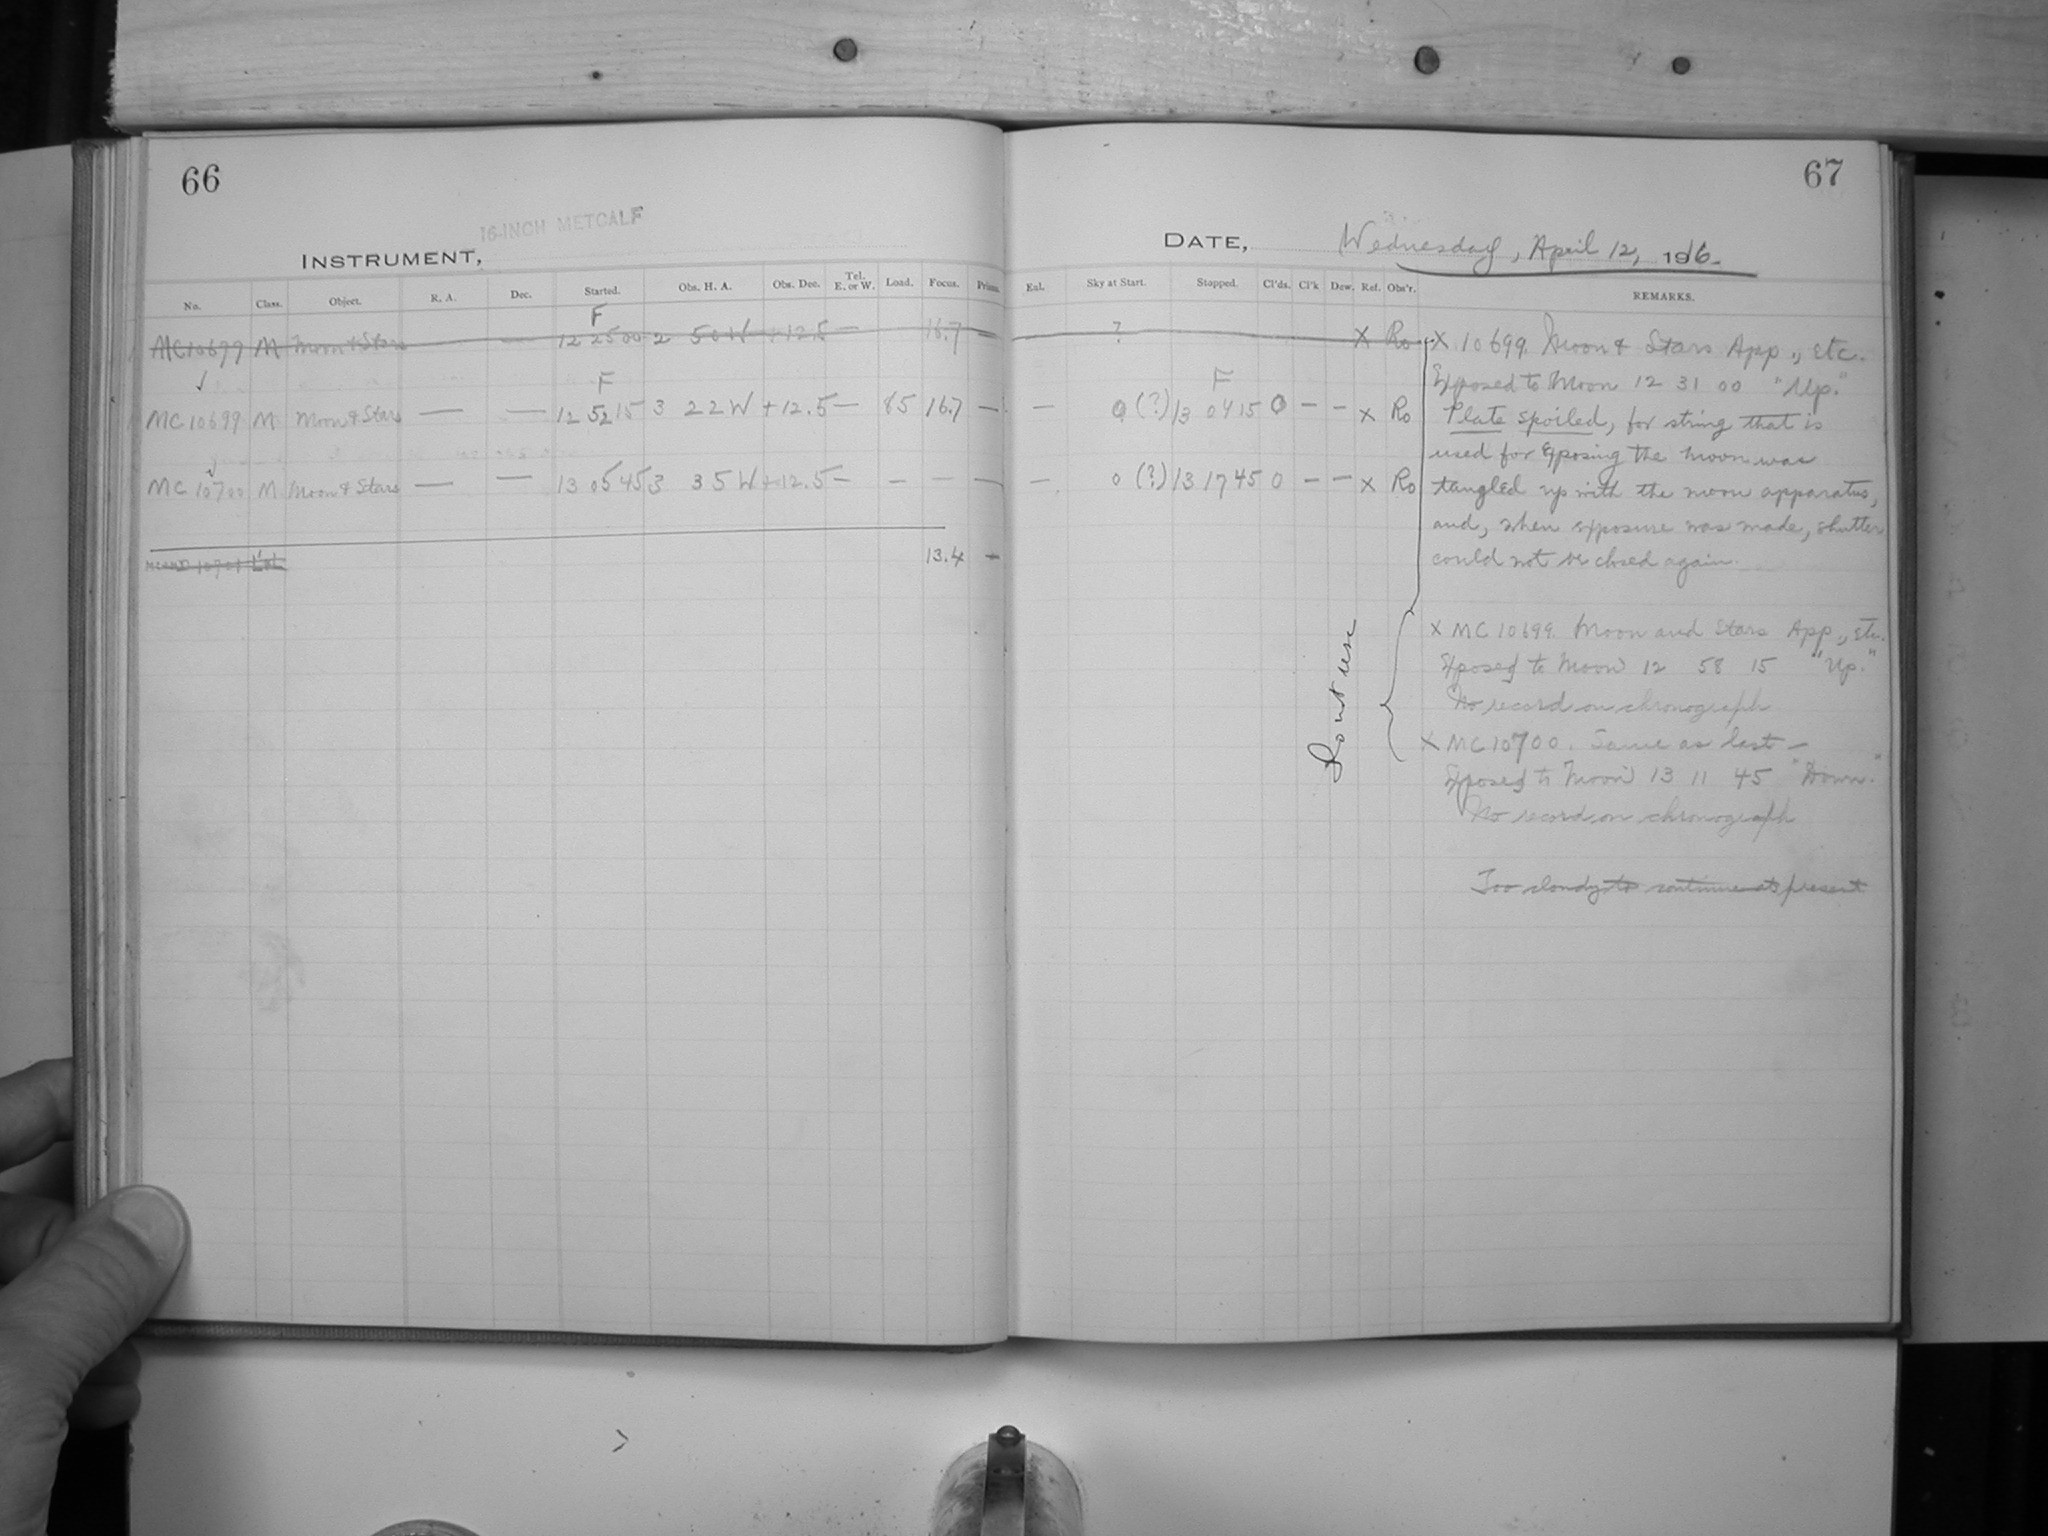 66
16-INCH METCALF
INSTRUMENT,
No. Class. Object. R. A. Dec. Started. Obs. H. A. Obs. Dec. Tel. E. or W. Load. Focus. Prism.
F
MC 10699 M Moon & Stars — 12 25 00 2 50 W +12.5 — 16.7 —
F
MC 10699 M Moon & Stars — — 12 52 15 3 22 W +12.5 — 85 16.7 —
MC 10700 M Moon & Stars — — 13 05 45 3 35 W +12.5 — — — —
10701 13.4 —
67
DATE, Wednesday, April 12, 1916.
Eal. Sky at Start. Stopped. Cl'ds. Cl'k Dew. Ref. Obs'r. REMARKS.
? X Ro
F
— 0 (?) 13 04 15 0 — — x Ro
— 0 (?) 13 17 45 0 — — x Ro
X 10699. Moon & Stars App., etc.
Exposed to Moon 12 31 00 "Up."
Plate spoiled, for string that is
used for exposing the moon was
tangled up with the moon apparatus,
and, when exposure was made, shutter
could not be closed again.
x MC 10699. Moon and Stars App., etc.
Exposed to Moon 12 58 15 "Up."
No record on chronograph
x MC 10700. Same as last —
Exposed to Moon 13 11 45 "Down."
No record on chronograph
Dont use
Too cloudy to continue at present